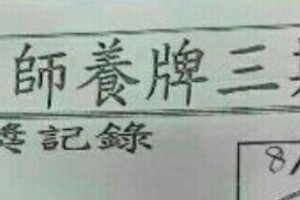 師養牌三
記錄
8/